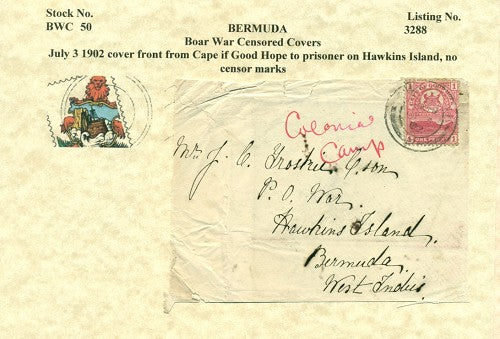 Stock No.
BWC 50
BERMUDA
Listing No.
3288
Boar War Censored Covers
July 3 1902 cover front from Cape if Good Hope to prisoner on Hawkins Island, no
censor marks
Colonial
Camp
Mr. J. C.
P. O. War.
Hawkins Island.
Bermuda.
West Indies